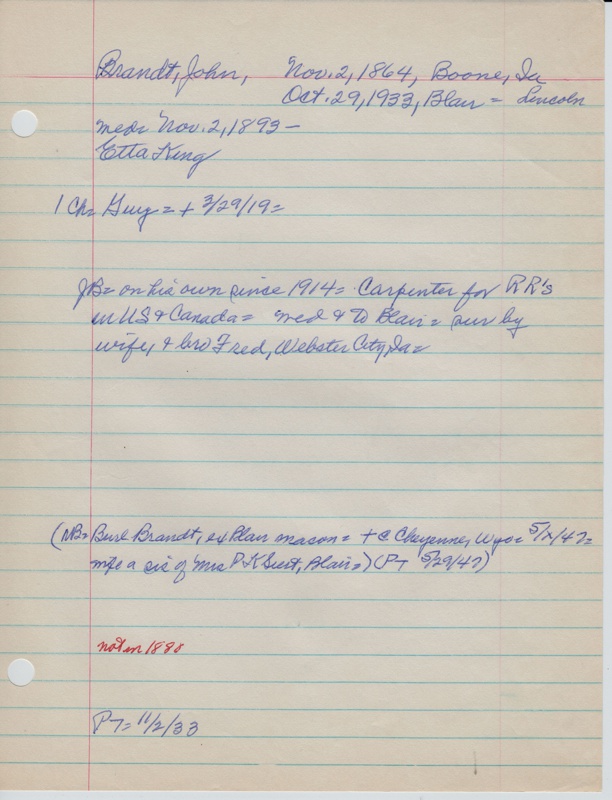 Brandt, John, Nov. 2, 1864, Boone, Ia
Oct. 29, 1933, Blair = Lincoln
med: Nov. 2, 1893 -
Etta King
1 Ch = Guy = + 3/29/19 =
JB = on his own since 1914 = Carpenter for RR's
in US & Canada = med & to Blair = sur by
wife, & bro Fred, Webster City, Ia =
(NB = Burl Brandt, ex Blair mason = + @ Cheyenne, Wyo = 5/x/47 =
wife a sis of Mrs P K, Blair =) (PT 5/29/47)
not in 1880
PT = 11/2/33